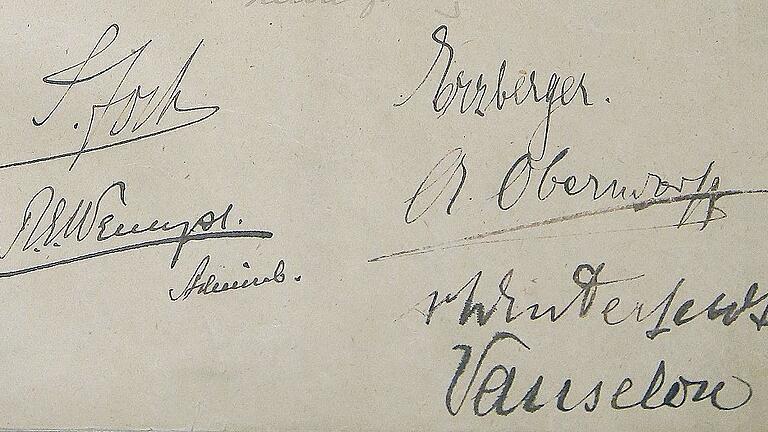 F. Foch
R. E. Wemyss.
Admiral.
Erzberger.
A. Oberndorff
v Winterfeldt
Vanselow